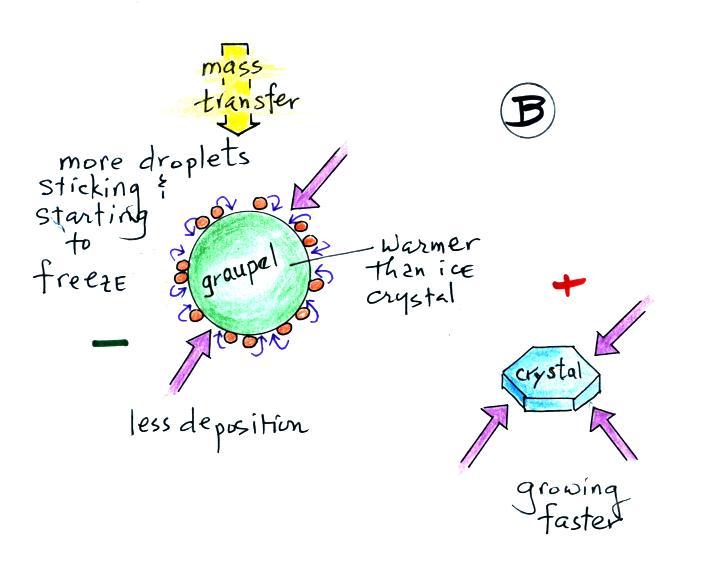 mass
transfer
B
more droplets
sticking &
starting
to
freeze
graupel
warmer
than ice
crystal
+
−
crystal
less deposition
growing
faster